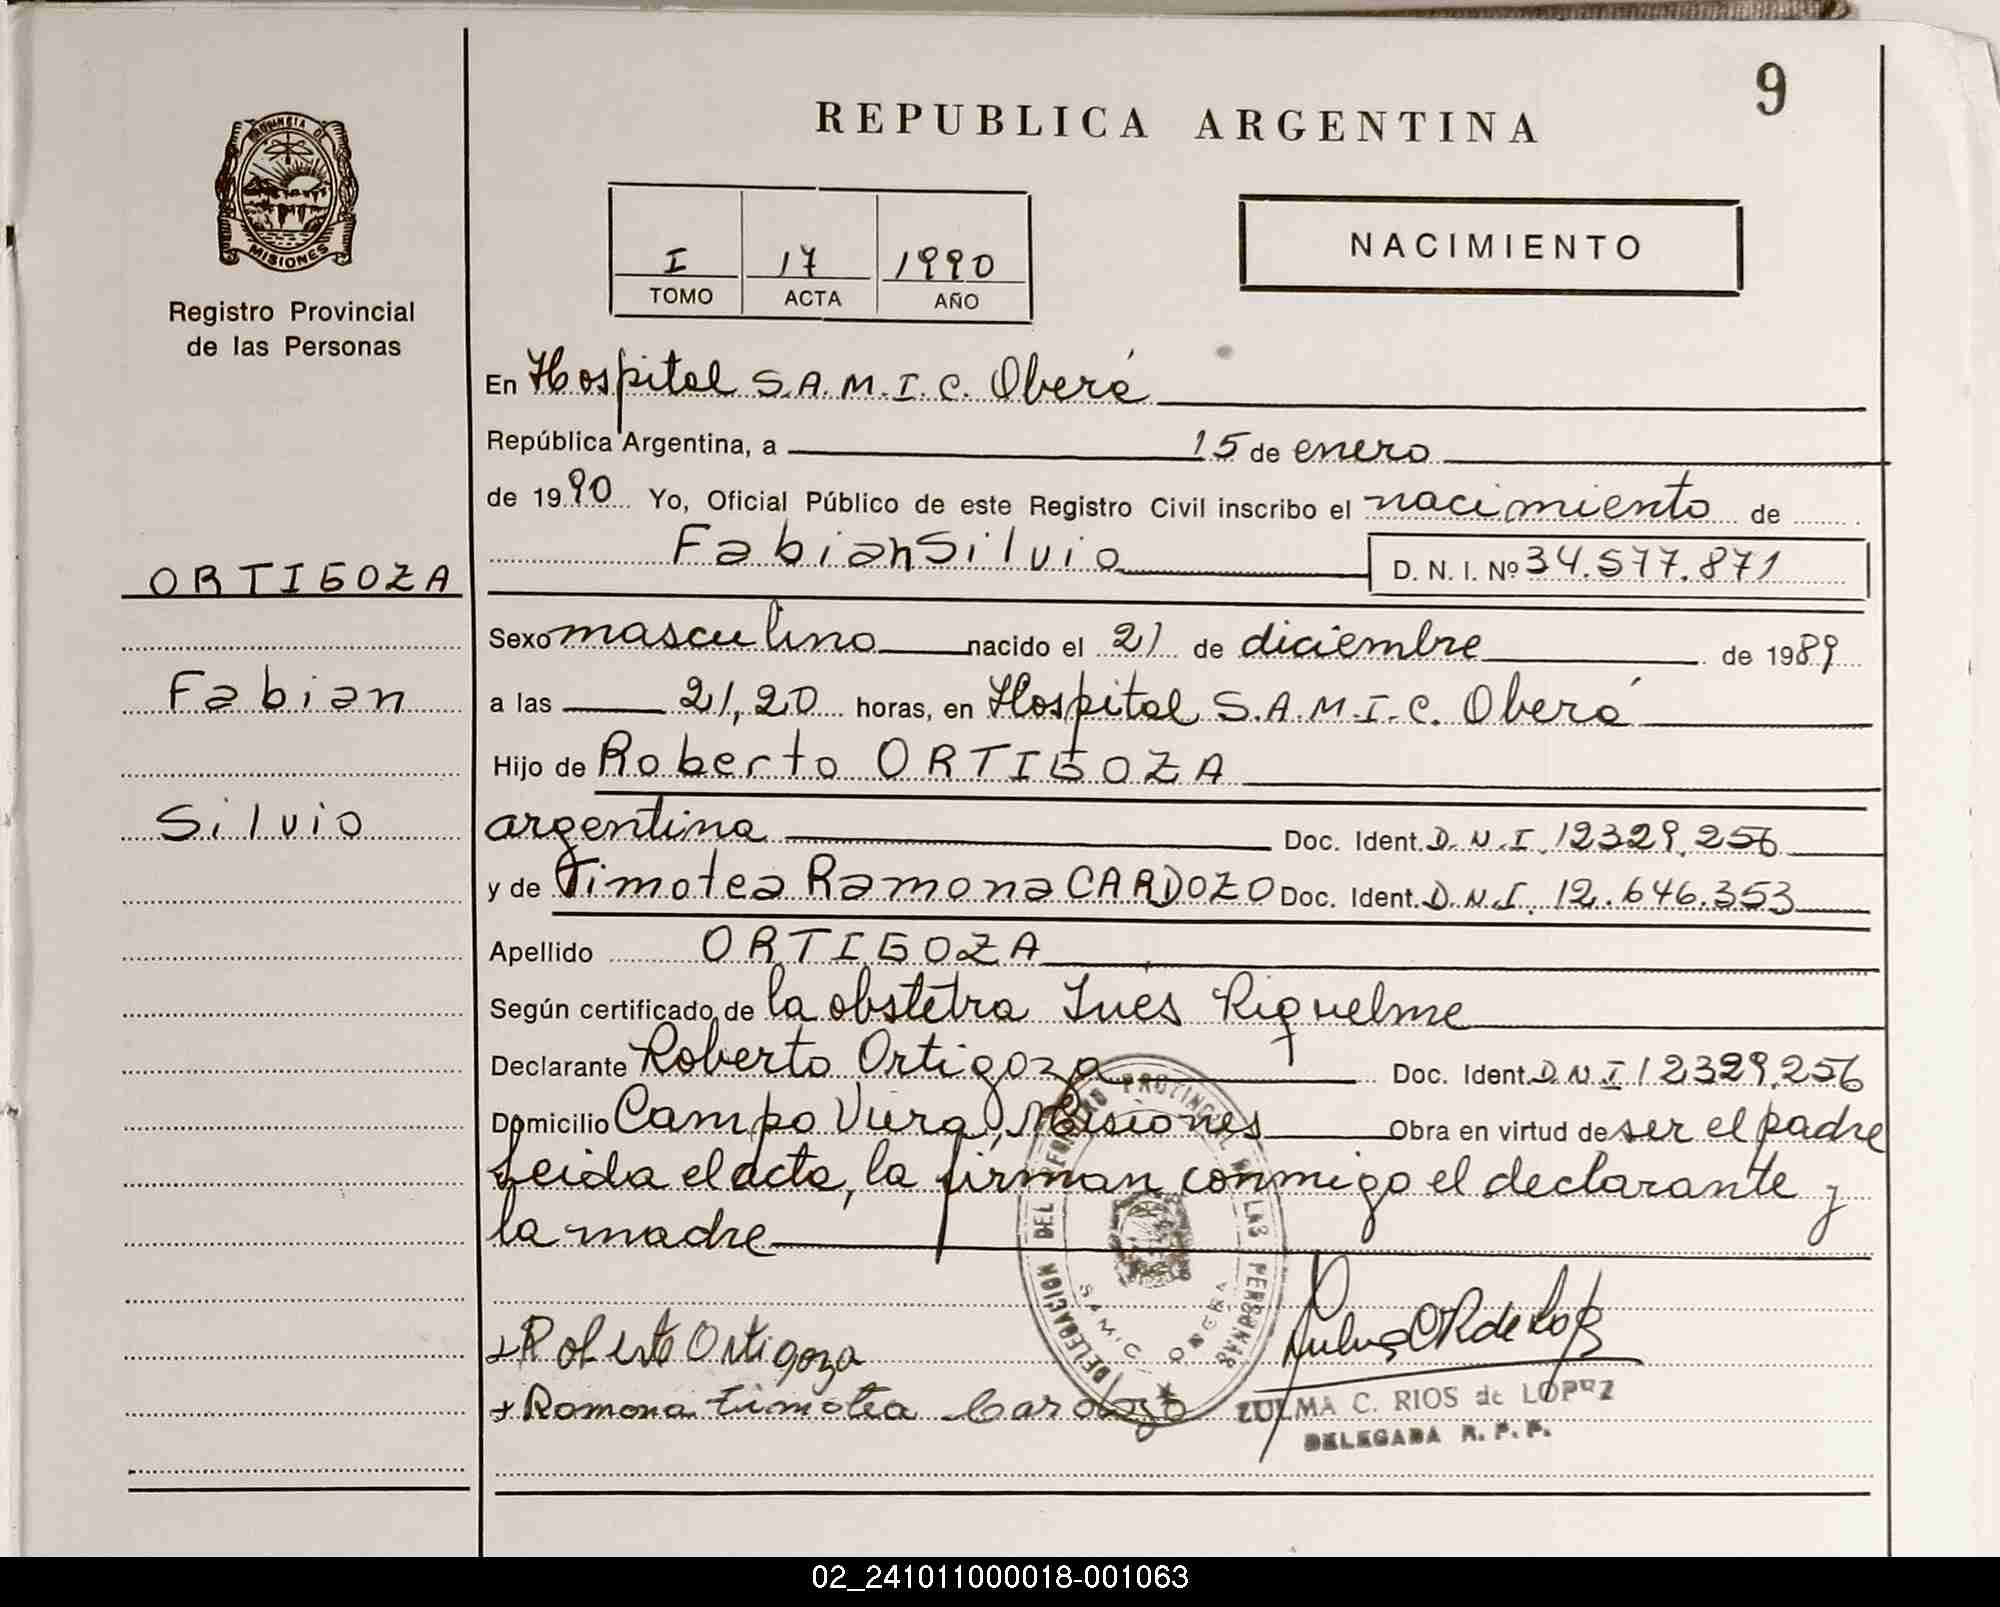 9
REPUBLICA ARGENTINA
PROVINCIA DE
MISIONES
Registro Provincial
de las Personas
I 17 1990
TOMO ACTA AÑO
NACIMIENTO
En Hospital S.A.M.I.C. Oberá
República Argentina, a 15 de enero
de 1990 Yo, Oficial Público de este Registro Civil inscribo el nacimiento de
Fabian Silvio D. N. I. Nº 34.577.871
ORTIGOZA
Fabian
Silvio
Sexo masculino nacido el 21 de diciembre de 1989
a las 21,20 horas, en Hospital S.A.M.I.C. Oberá
Hijo de Roberto ORTIGOZA
argentina Doc. Ident. D.N.I. 12329.256
y de Timotea Ramona CARDOZO Doc. Ident. D.N.I. 12.646.353
Apellido ORTIGOZA
Según certificado de la obstetra Ines Riquelme
Declarante Roberto Ortigoza Doc. Ident. D.N.I 12329.256
Domicilio Campo Viera, Misiones Obra en virtud de ser el padre
Leida el acta, la firman conmigo el declarante y
la madre
DELEGACION DEL REGISTRO PROVINCIAL DE LAS PERSONAS
SAMIC OBERA
+ Roberto Ortigoza
+ Ramona timotea Cardozo
ZULMA C. RIOS de LOPEZ
DELEGADA R. P. P.
02_241011000018-001063